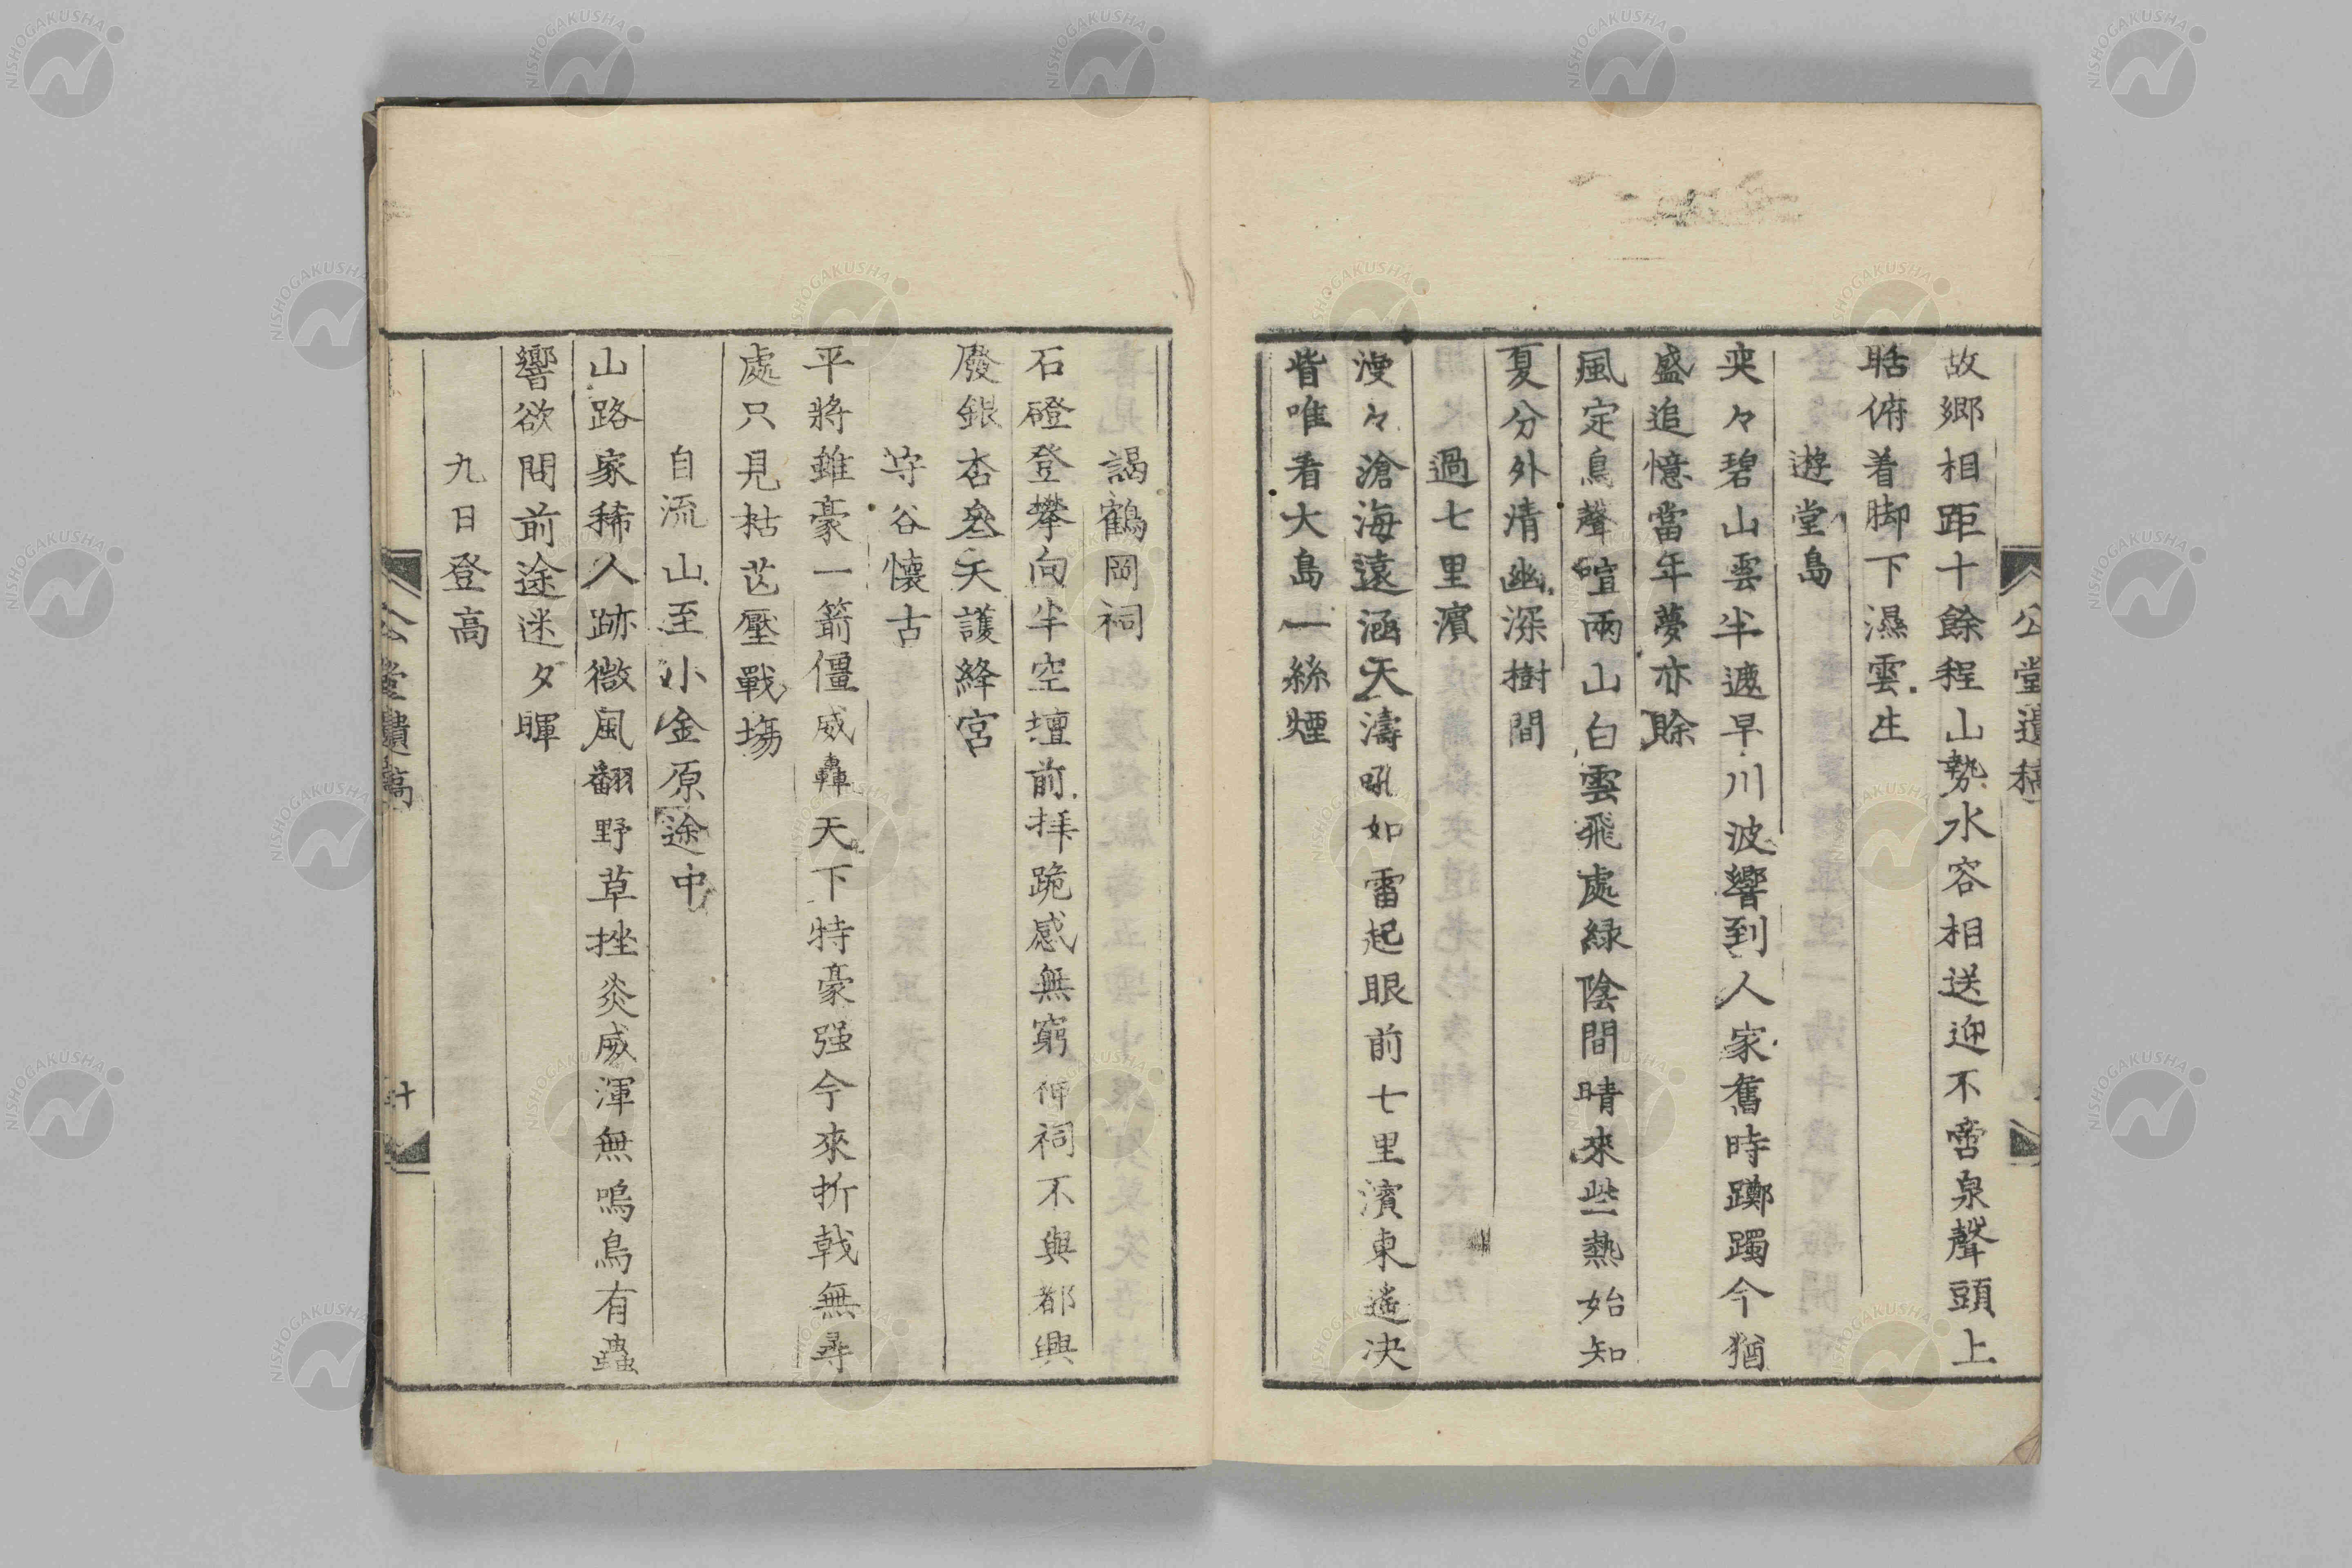 故郷相距十餘程山勢水容相送迎不啻泉聲頭上
聒俯着脚下濕雲生
遊堂島
奕々碧山雲半遮早川波響到人家舊時躑躅今猶
盛追憶當年夢亦賖
風定鳥聲喧兩山白雲飛處緑陰間晴來些熱始知
夏分外清幽深樹間
過七里濱
漫々滄海遠涵天濤吼如雷起眼前七里濱東遙决
眥唯看大島一絲煙
公堂遺稿
謁鶴岡祠
石磴登攀向半空壇前拝跪感無窮神祠不與都興
廢銀杏參天護絳宮
守谷懐古
平將雖豪一箭僵威轟天下特豪强今來折戟無尋
處只見枯芒壓戰塲
自流山至小金原途中
山路家稀人跡微風翻野草挫炎威渾無鳴鳥有蟲
響欲問前途迷夕暉
九日登高
公堂遺稿
十
NISHOGAKUSHA